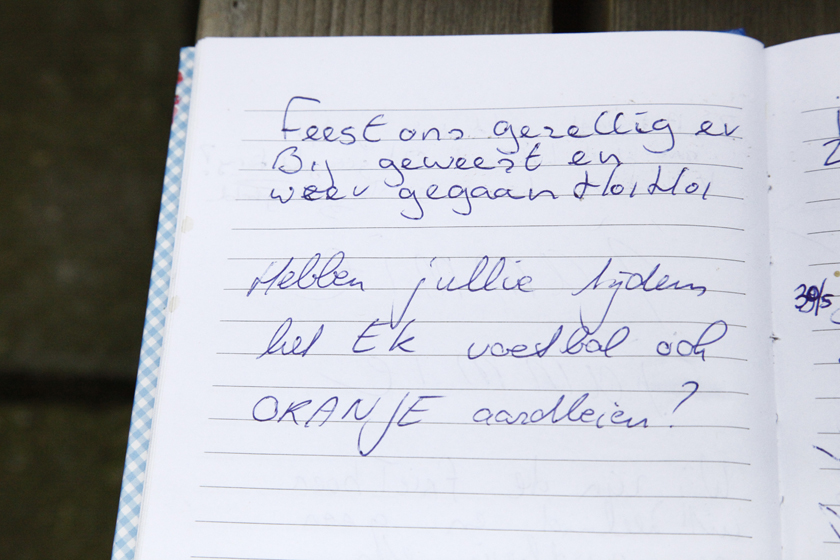 Feest ons gezellig er
Bij geweest en
weer gegaan HoiHoi
Hebben jullie tijdens
het EK voetbal ook
ORANJE aardbeien?